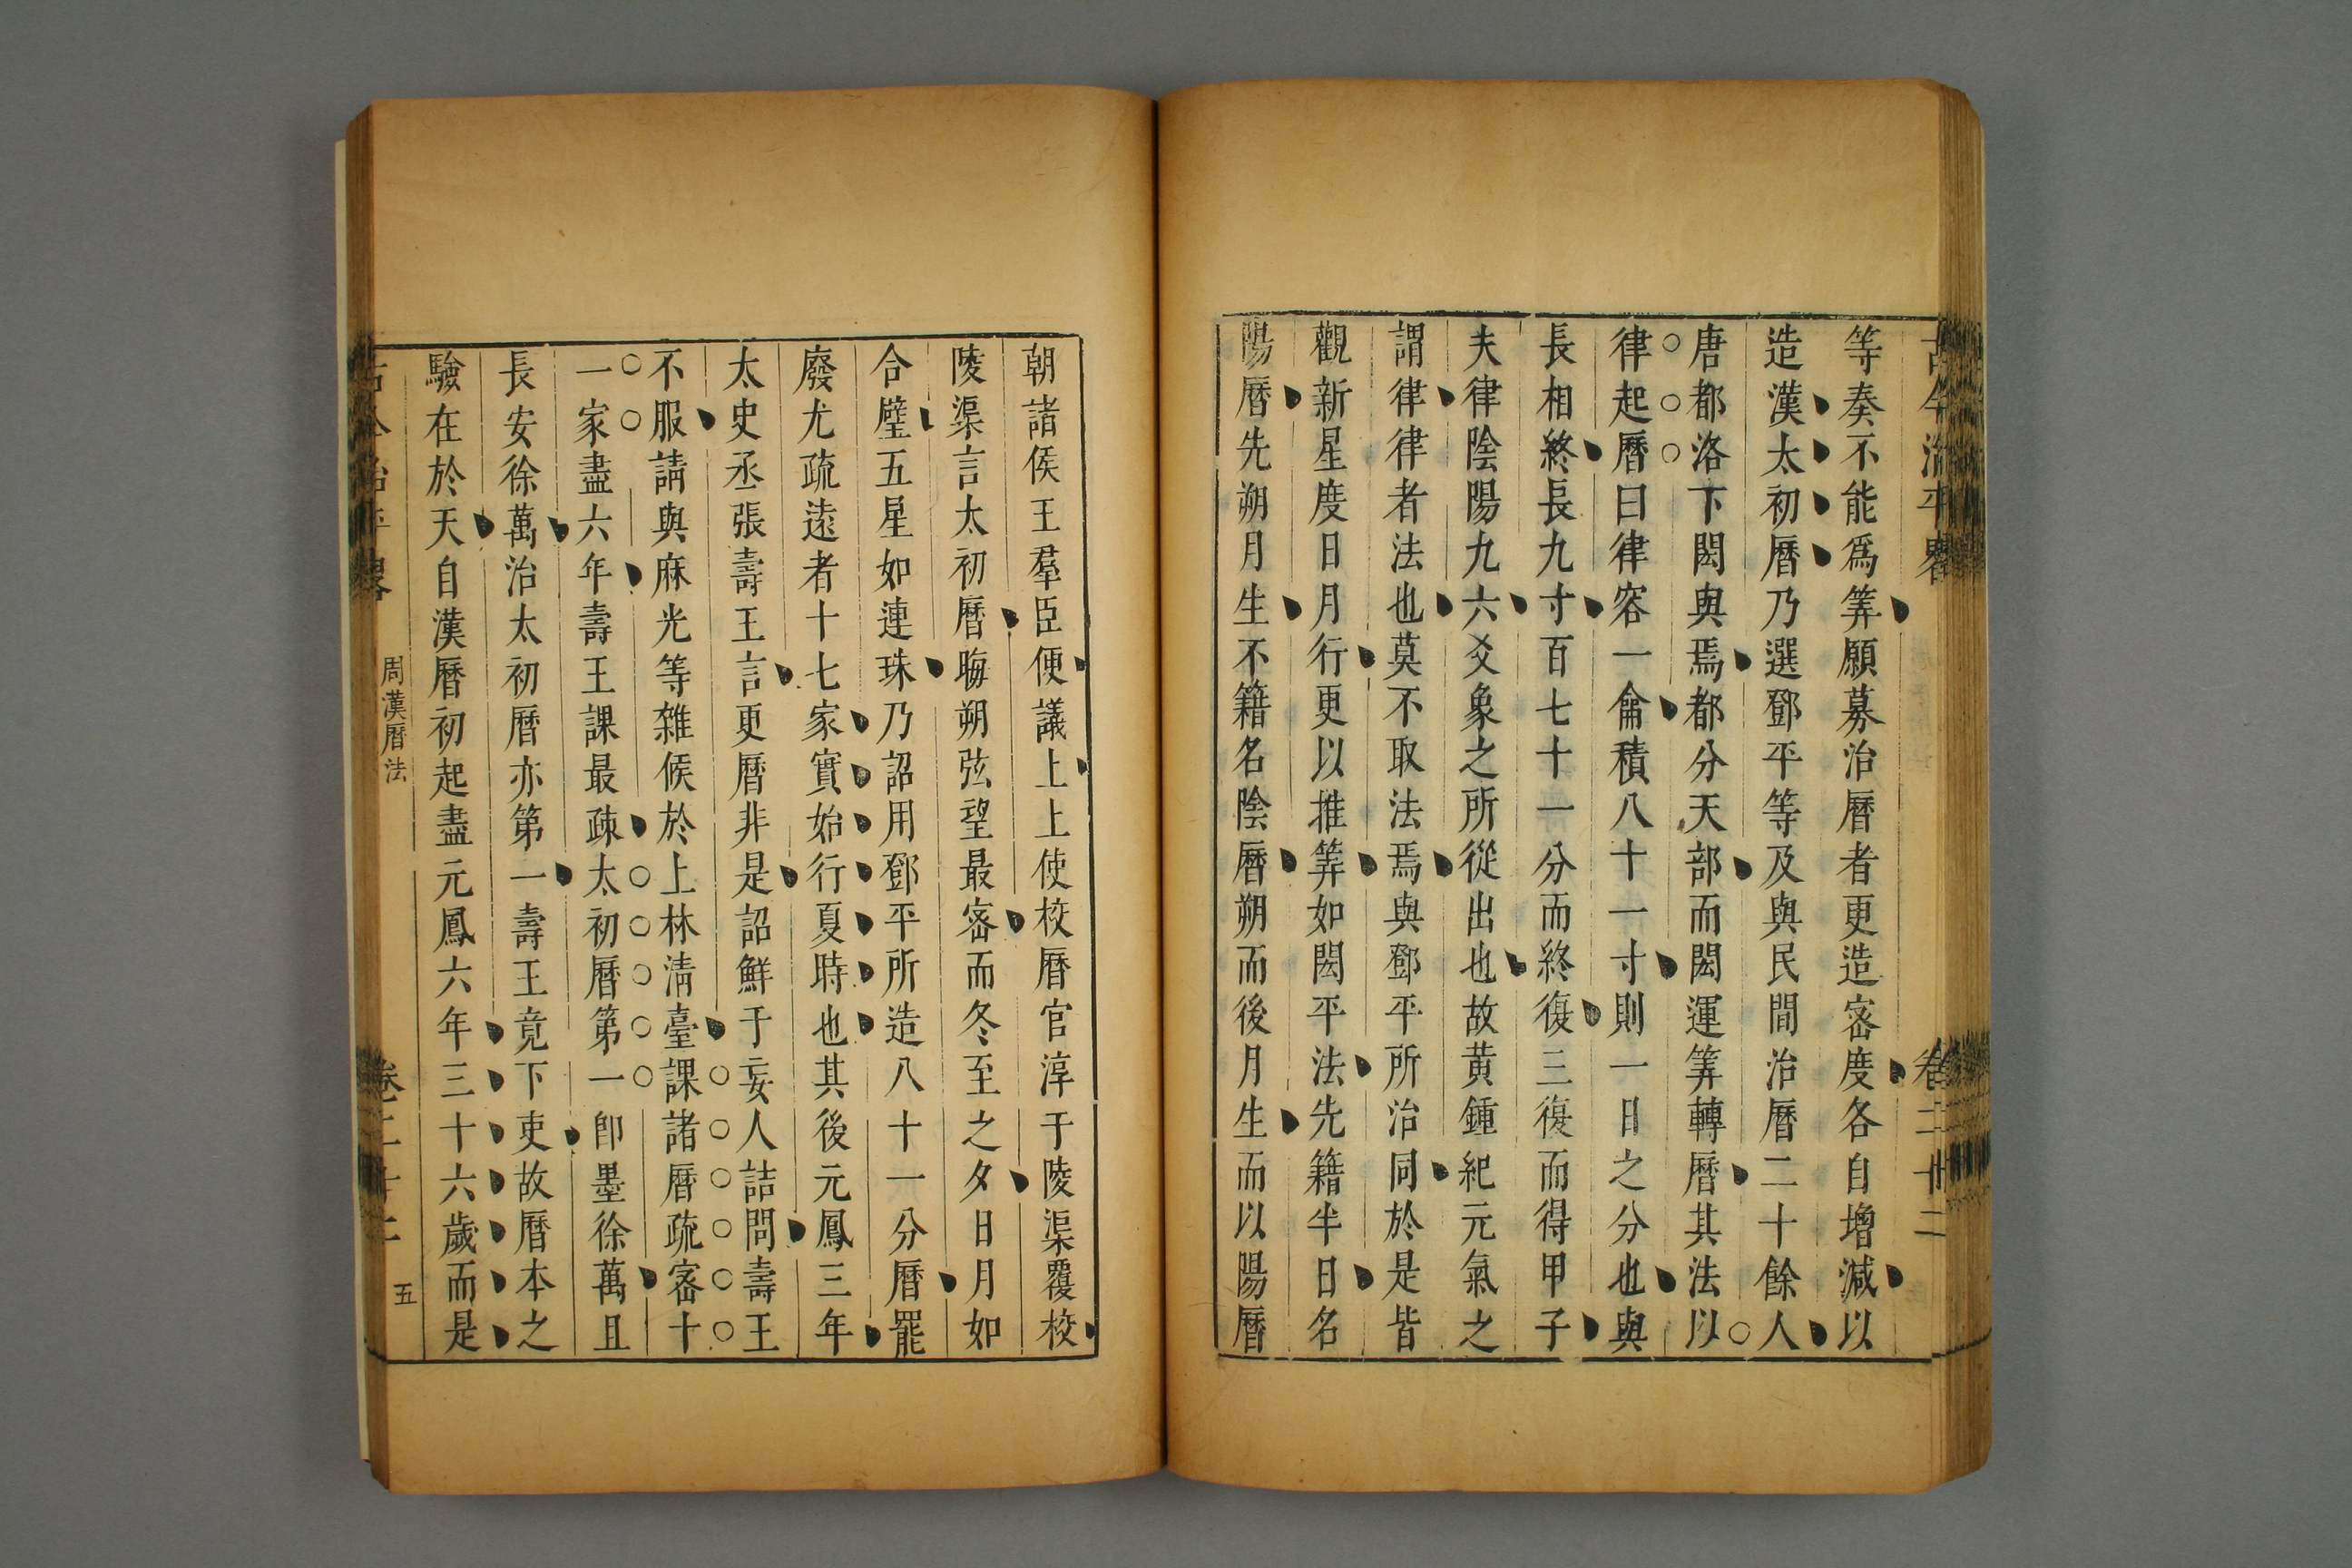 等奏不能爲筭願募治曆者更造宻度各自增減以
造漢太初曆乃選鄧平等及與民間治曆二十餘人
唐都洛下閎與焉都分天部而閎運筭轉曆其法以
律起曆曰律容一龠積八十一寸則一日之分也與
長相終長九寸百七十一分而終復三復而得甲子
夫律陰陽九六爻象之所從出也故黃鍾紀元氣之
謂律律者法也莫不取法焉與鄧平所治同於是皆
觀新星度日月行更以推筭如閎平法先籍半日名
陽曆先朔月生不籍名陰曆朔而後月生而以陽曆
朝諸侯王羣臣便議上上使校曆官淳于陵渠覆校
陵渠言太初曆晦朔弦望最宻而冬至之夕日月如
合璧五星如連珠乃詔用鄧平所造八十一分曆罷
廢尤疏遠者十七家實始行夏時也其後元鳳三年
太史丞張壽王言更曆非是詔鮮于妄人詰問壽王
不服請與麻光等雜候於上林淸臺課諸曆疏宻十
一家盡六年壽王課最疎太初曆第一卽墨徐萬且
長安徐萬治太初曆亦第一壽王竟下吏故曆本之
驗在於天自漢曆初起盡元鳳六年三十六歲而是
周漢曆法
卷二十二
五